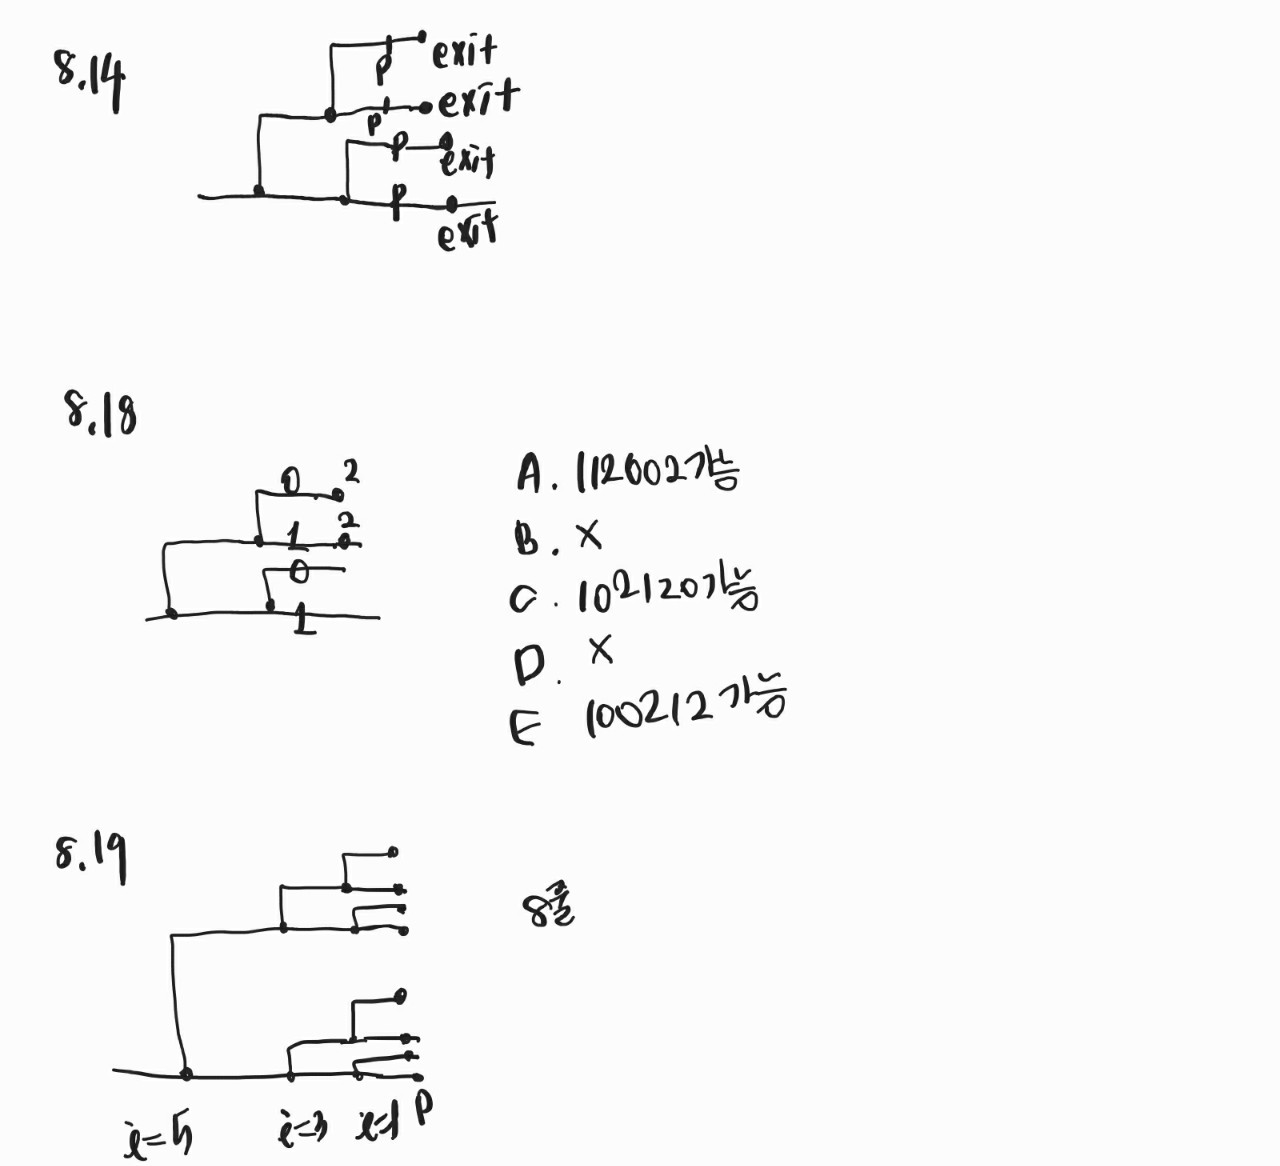 8.14
exit
p
exit
p
p
exit
p
exit
8.18
0 2
1 2
0
1
A. 112002가능
B. X
C. 102120가능
D. X
E 100212가능
8.19
8줄
i=5 i=3 i=1 p